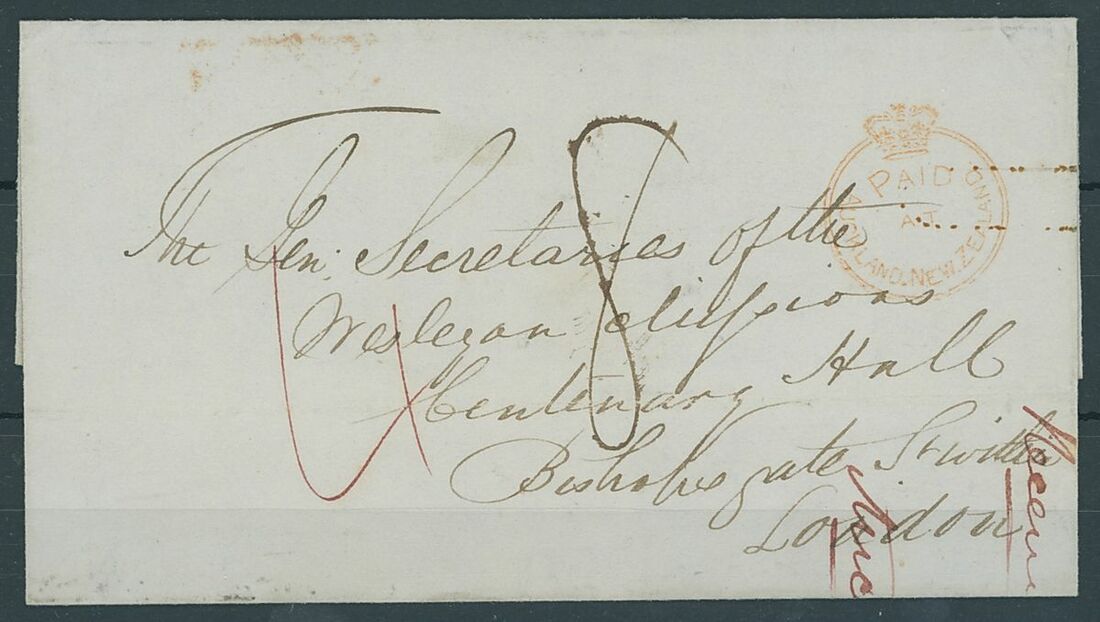 PAID
AT
AUCKLAND. NEW. ZEALAND
8
4
The Gen: Secretaries of the
Wesleyan Missions
Centenary Hall
Bishopsgate St within
London